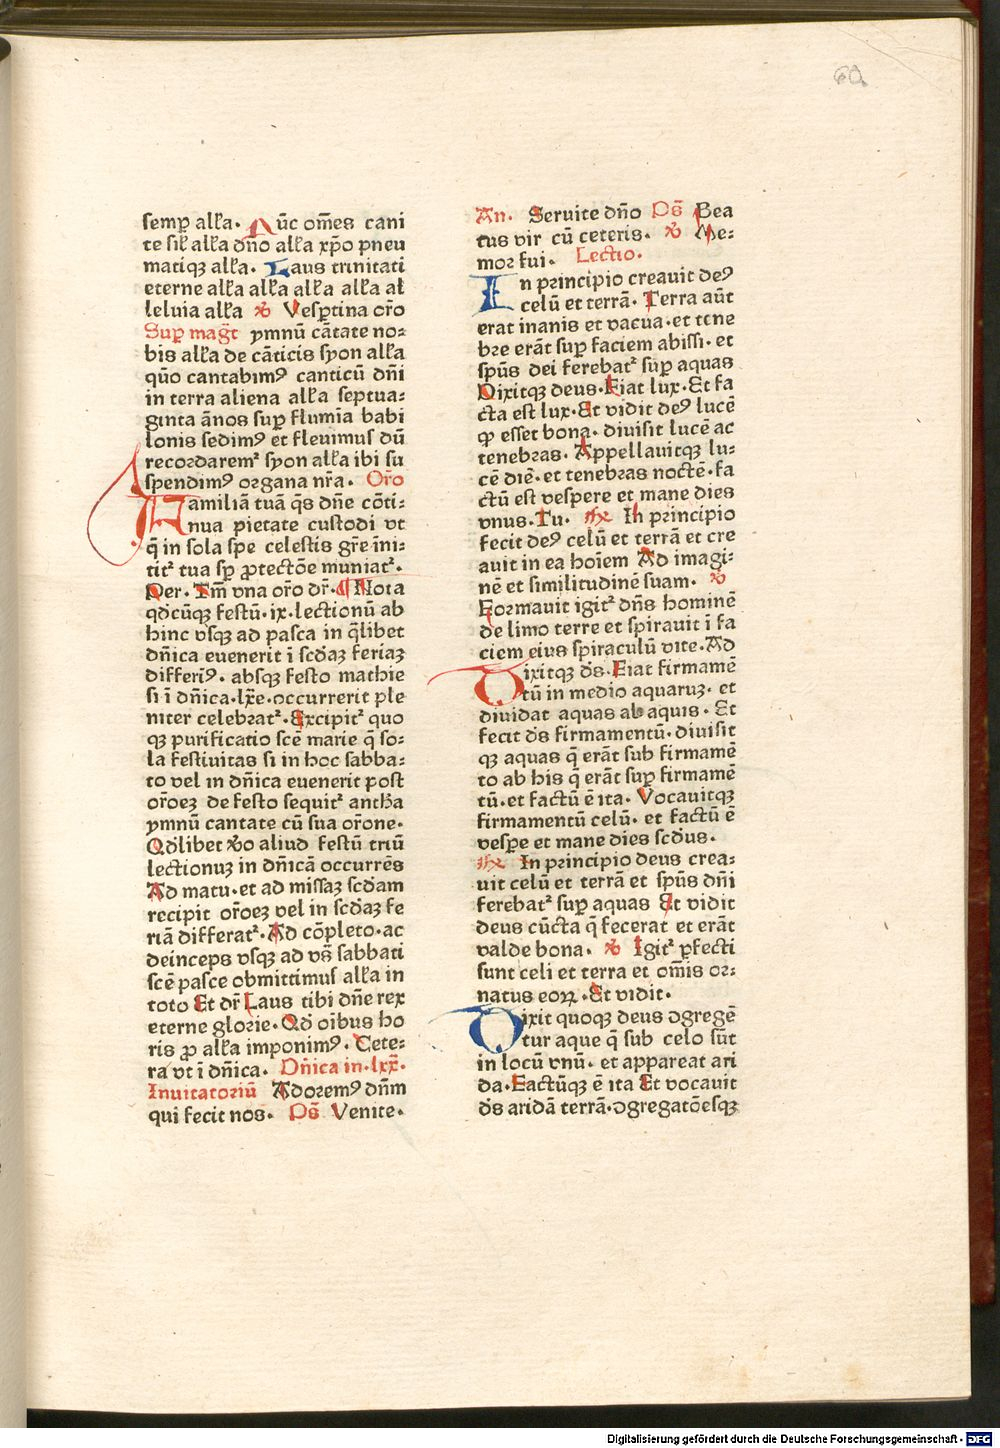 60
semꝑ allʼa. Nūc om̄es cani
te sil̓ allʼa dn̄o allʼa xp̄o pneu
matiqꝫ allʼa. Laus trinitati
eterne allʼa allʼa allʼa allʼa al
leluia allʼa ℟ Vesꝑtina or̄o
Suꝑ magt̄ ymnū cātate no⸗
bis allʼa de cāticis syon allʼa
quō cantabimꝰ canticū dn̄i
in terra aliena allʼa septua⸗
ginta ānos suꝑ flumīa babi
lonis sedimꝰ et fleuimus dū
recordaremᷣ syon allʼa ibi su
spendimꝰ organa nr̄a. Or̄o
Familiā tuā qs̄ dn̄e cōti⸗
nua pietate custodi vt
q̄ in sola spe celestis gr̄e īni⸗
titᷣ tua sꝑ ꝓtectōe muniatᷣ.
Per. Tm̄ vna or̄o dr̄. ¶ Nota
qd̄cūqꝫ festū. ix. lectionū ab
hinc vsqꝫ ad pasca in q̄libet
dn̄ica euenerit ī scd̄aꝫ feriaꝫ
differīꝰ. absqꝫ festo mathie
si ī dn̄ica. lxͤ. occurrerit ple
niter celebratᷣ. Excipitᷣ quo
qꝫ purificatio scē marie q̄ so⸗
la festiuitas si in hoc sabba⸗
to vel in dn̄ica euenerit post
or̄oeꝫ de festo sequitᷣ antħa
ymnū cantate cū sua or̄one.
Qd̄libet ꝟo aliud festū triū
lectionuꝫ in dn̄icā occurrēs
Ad matu. et ad missaꝫ scd̄am
recipit or̄oeꝫ vel in scd̄aꝫ fe
riā differatᷣ. Ad cōpleto. ac
deinceps vsqꝫ ad vs̄ sabbati
scē pasce obmittimus allʼa in
toto Et dr̄ Laus tibi dn̄e rex
eterne glorie. Qd̄ oībus ho
ris ꝓ allʼa imponimꝰ. Cete⸗
ra vt ī dn̄ica. Dn̄ica in. lxx̄.
Inuitatoriū Adoremꝰ dn̄m
qui fecit nos. Ps̄ Venite.
An. Seruite dn̄o Ps̄ Bea
tus vir cū ceteris. ℟ Me⸗
mor fui. Lectio.
In principio creauit deꝰ
celū et terrā. Terra aūt
erat inanis et vacua. et tene
bre erāt suꝑ faciem abissi. et
spūs dei ferebatᷣ suꝑ aquas
Dixitqꝫ deus. Fiat lux. Et fa
cta est lux. Et vidit deꝰ lucē
ꝙ esset bona. diuisit lucē ac
tenebras. Appellauitqꝫ lu⸗
cē diē. et tenebras noctē. fa
ctū est vespere et mane dies
vnus. Tu. ℟ In principio
fecit deꝰ celū et terrā et cre
auit in ea hoīem Ad imagi⸗
nē et similitudinē suam. ℣
Formauit igitᷣ dn̄s hominē
de limo terre et spirauit ī fa
ciem eius spiraculū vite. Ad
Dixitqꝫ ds̄. Fiat firmamē
tū in medio aquaruꝫ. et
diuidat aquas ab aquis. Et
fecit ds̄ firmamentū. diuisit
qꝫ aquas q̄ erāt sub firmamē
to ab his q̄ erāt suꝑ firmamē
tū. et factū ē ita. Vocauitqꝫ
firmamentū celū. et factū ē
vesꝑe et mane dies scd̄us.
℟ In principio deus crea⸗
uit celū et terrā et spūs dn̄i
ferebatᷣ suꝑ aquas Et vidit
deus cūcta q̄ fecerat et erāt
valde bona. ℣ Igitᷣ ꝑfecti
sunt celi et terra et om̄is or⸗
natus eoꝝ. Et vidit.
Dixit quoqꝫ deus ꝯgregē
tur aque q̄ sub celo sūt
in locū vnū. et appareat ari
da. Factūqꝫ ē ita Et vocauit
ds̄ aridā terrā. ꝯgregatōesqꝫ
Digitalisierung gefördert durch die Deutsche Forschungsgemeinschaft - DFG